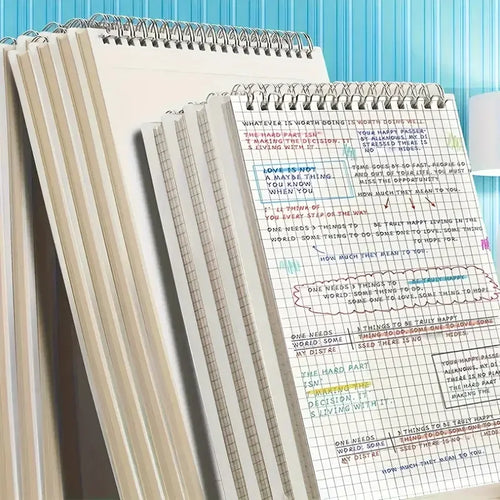 WHATEVER IS WORTH DOING IS WORTH DOING WELL.
THE HARD PART ISN'
T MAKING THE DECISION. IT
S LIVING WITH IT.
YOUR HAPPY PASSER-
BY ALLKNOWS, MY DI
STRESSED THERE IS
NO HIDES.
LOVE IS NOT
A MAYBE THING.
YOU KNOW
WHEN YOU
TIME GOES BY SO FAST, PEOPLE GO
AND OUT OF YOUR LIFE. YOU MUST
MISS THE OPPORTUNITY
HOW MUCH THEY MEAN TO YOU.
I' LL THINK OF
YOU EVERY STEP OF THE WAY
ONE NEEDS 3 THINGS TO BE TRULY HAPPY LIVING IN THE
WORLD: SOME THING TO DO. SOME ONE TO LOVE, SOME THING
TO HOPE FOR.
HOW MUCH THEY MEAN TO YOU.
ONE NEEDS 3 THINGS TO BE TRULY HAPPY
WORLD: SOME THING TO DO.
SOME ONE TO LOVE, SOME THING TO HOPE
ONE NEEDS 3 THINGS TO BE TRULY HAPPY
WORLD: SOME THING TO DO. SOME ONE TO LOVE, SOME
MY DISTRE SSED THERE IS NO HIDES.
THE HARD PART
ISN'
T MAKING THE
DECISION. IT
S LIVING WITH IT.
YOUR HAPPY PASSE
ALLKNOWS, MY DIS
THERE IS NO PLA
THE HARD PART
MAKING THE
ONE NEEDS 3 THINGS TO BE TRULY HAPPY
WORLD: SOME THING TO DO. SOME ONE TO LOVE, SOME
MY DISTRE SSED THERE IS NO HIDES.
HOW MUCH THEY MEAN TO YOU.